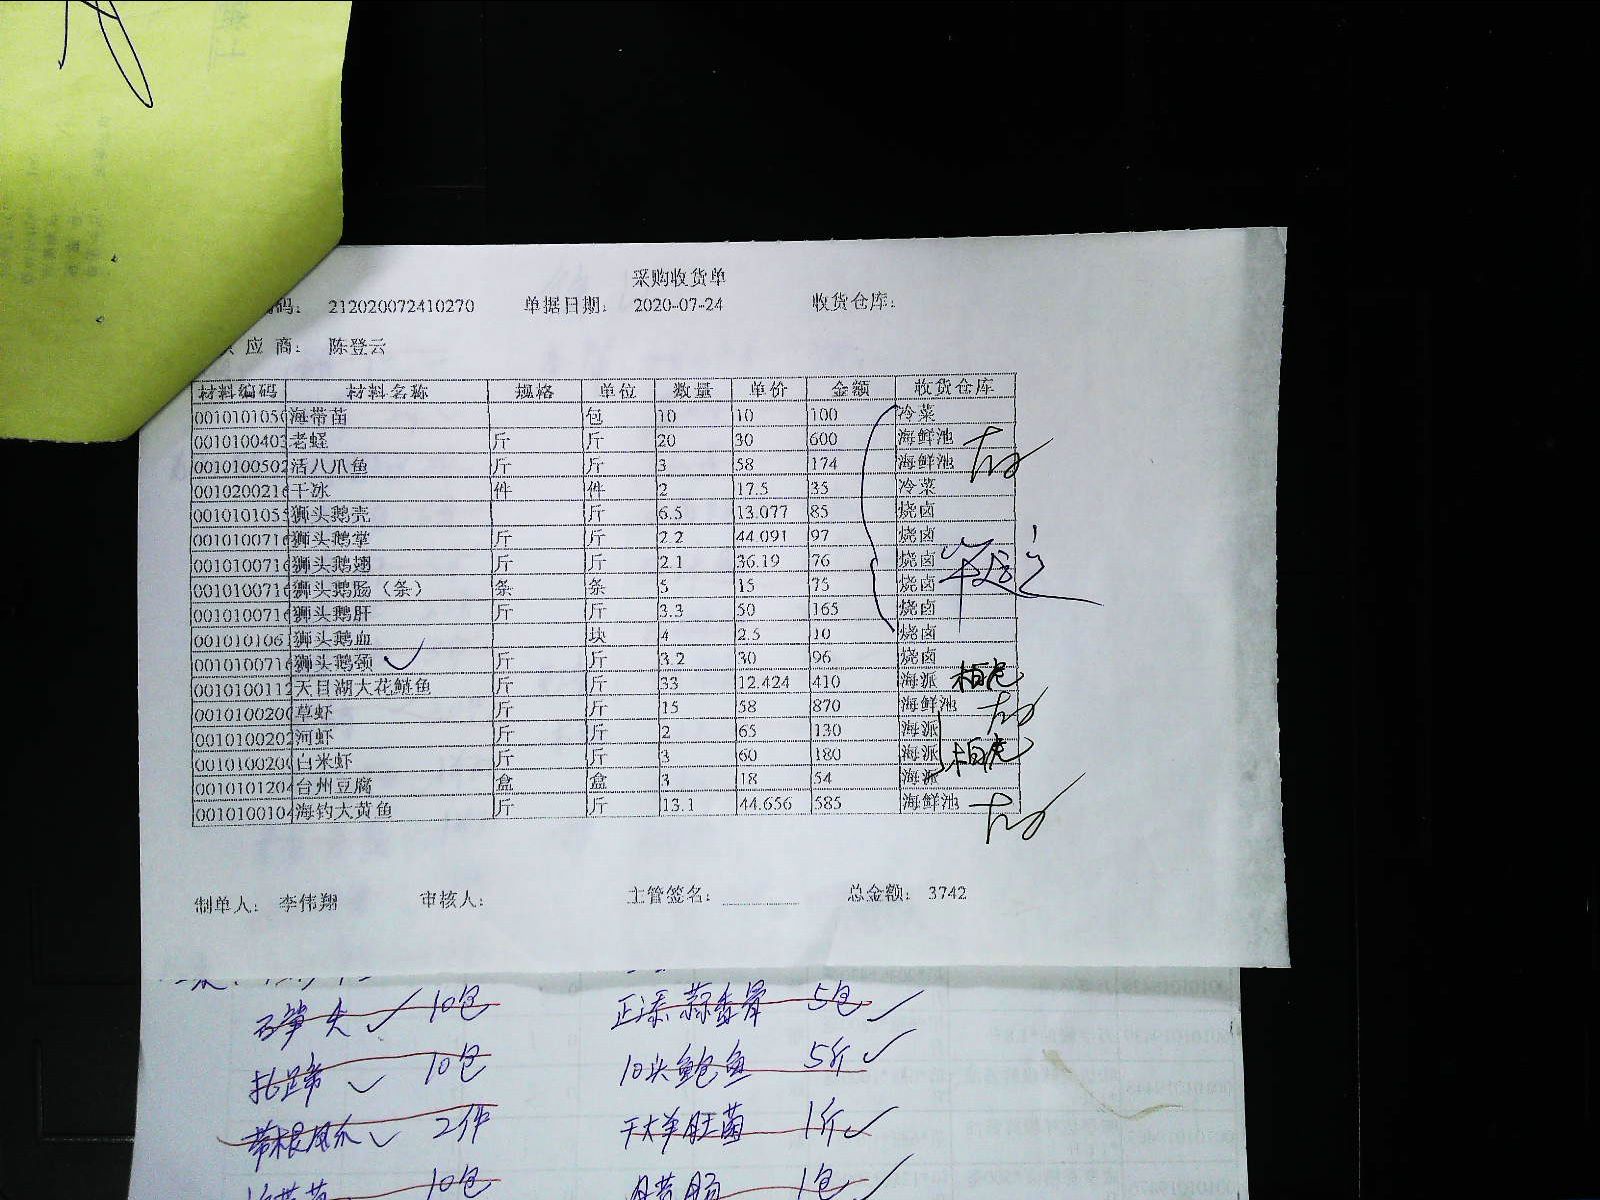 采购收货单
码: 212020072410270 单据日期: 2020-07-24 收货仓库:
应 商: 陈登云
材料编码 材料名称 规格 单位 数量 单价 金额 收货仓库
001010105 海带苗 包 10 10 100 冷菜
0010100403 老蛏 斤 斤 20 30 600 海鲜池
0010100502 活八爪鱼 斤 斤 3 58 174 海鲜池
0010200216 干冰 件 件 2 17.5 35 冷菜
0010101055 狮头鹅壳 斤 6.5 13.077 85 烧卤
0010100716 狮头鹅掌 斤 斤 2.2 44.091 97 烧卤
0010100716 狮头鹅翅 斤 斤 2.1 36.19 76 烧卤
0010100716 狮头鹅肠（条） 条 条 5 15 75 烧卤
0010100716 狮头鹅肝 斤 斤 3.3 50 165 烧卤
001010106 狮头鹅血 块 4 2.5 10 烧卤
0010100716 狮头鹅颈 斤 斤 3.2 30 96 烧卤
0010100112 天目湖大花鲢鱼 斤 斤 33 12.424 410 海派
001010020 草虾 斤 斤 15 58 870 海鲜池
0010100202 河虾 斤 斤 2 65 130 海派
001010020 白米虾 斤 斤 3 60 180 海派
0010101204 台州豆腐 盒 盒 3 18 54 海派
0010100104 海钓大黄鱼 斤 斤 13.1 44.656 585 海鲜池
制单人: 李伟翔 审核人: 主管签名: 总金额: 3742
石笋尖 10包 正添蒜香骨 5包
扎蹄 10包 10头鲍鱼 5斤
2件 干大羊肚菌 1斤
10包 腊肠 1包